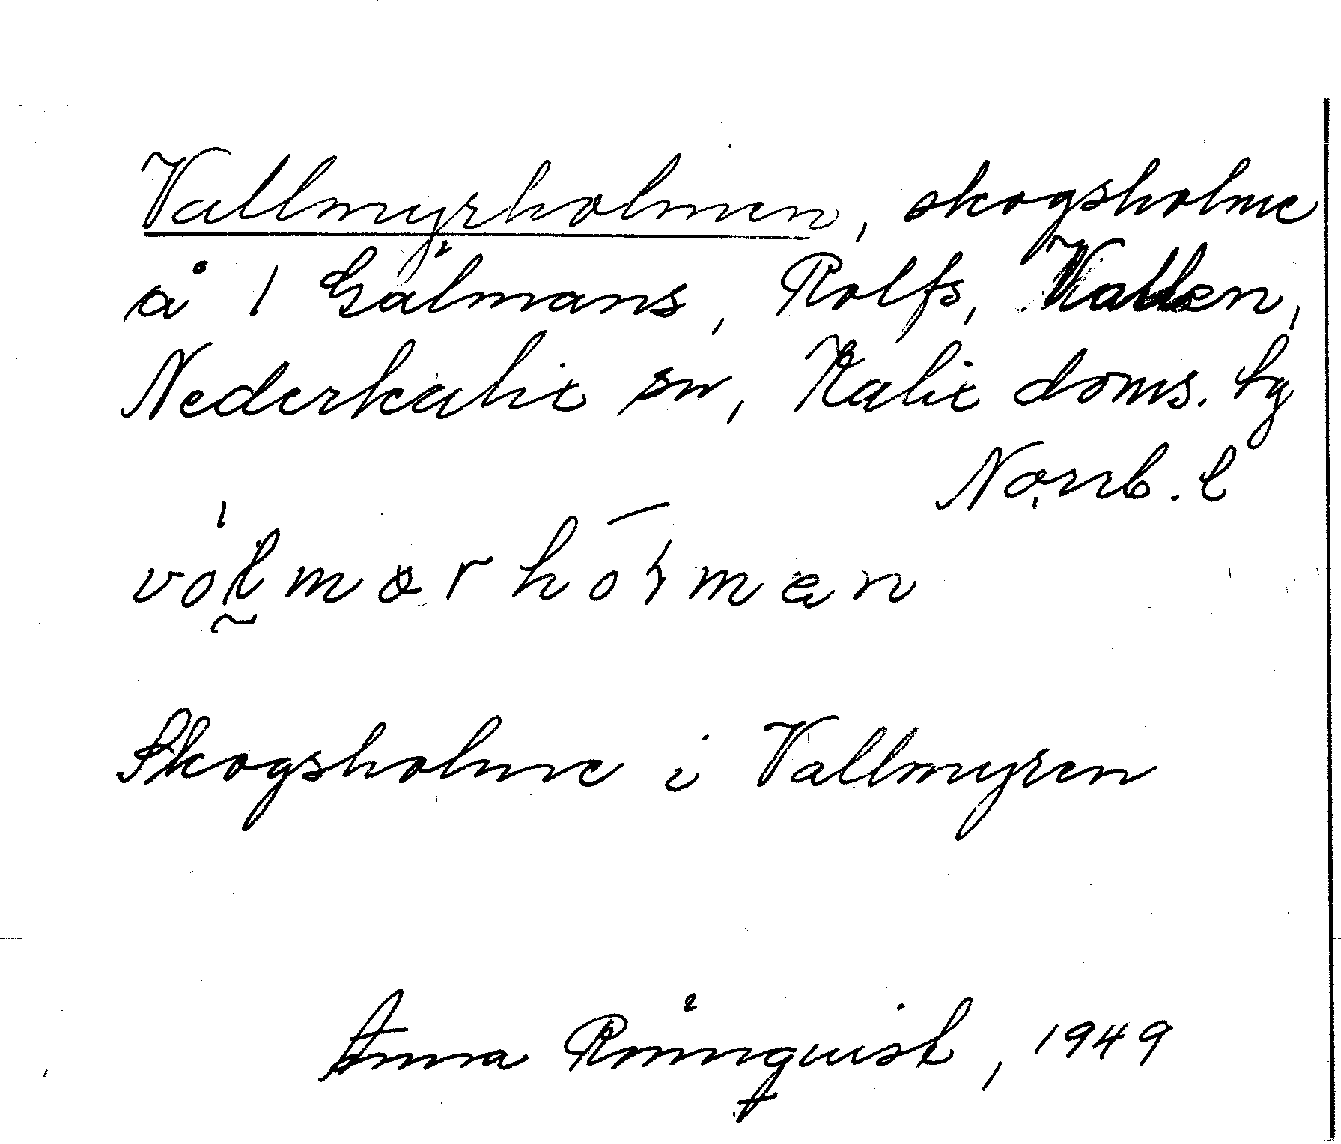 Vallmyrholmen, skogsholme
å 1 Gälmans, Rolfs, Vallen,
Nederkalix sn, Kalix doms. tg
Norrb. l
Skogsholme i Vallmyren
Anna Rönnquist, 1949